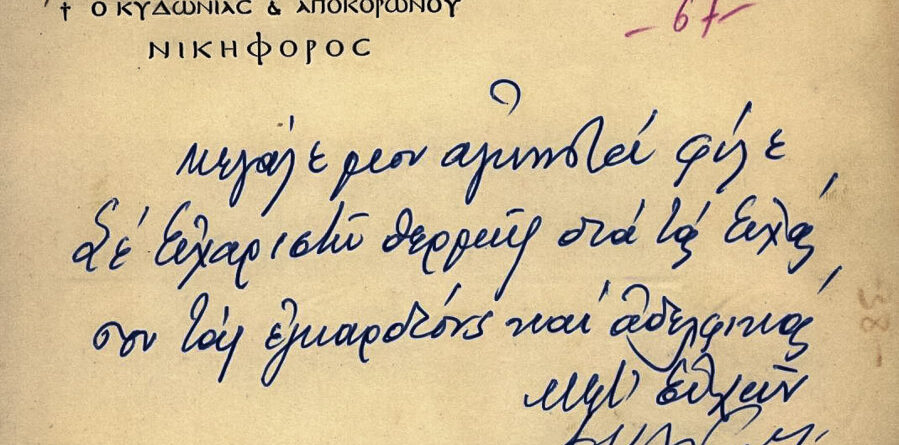 † Ο ΚΥΔΩΝΙΑΣ & ΑΠΟΚΟΡΩΝΟΥ
ΝΙΚΗΦΟΡΟΣ
- 67 -
Μεγάλε μου ἀγαπητέ φίλε
Σέ εὐχαριστῶ θερμῶς διά τάς εὐχάς
σου τάς ἐγκαρδίους καί ἀδελφικάς
Μετ' εὐχῶν
38 -